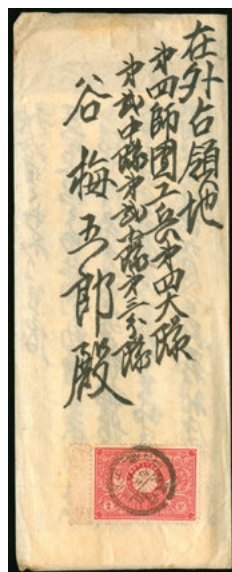 在外占領地
第四師團工兵第四大隊
第弍中隊第弍小隊第三分隊
谷梅五郎殿